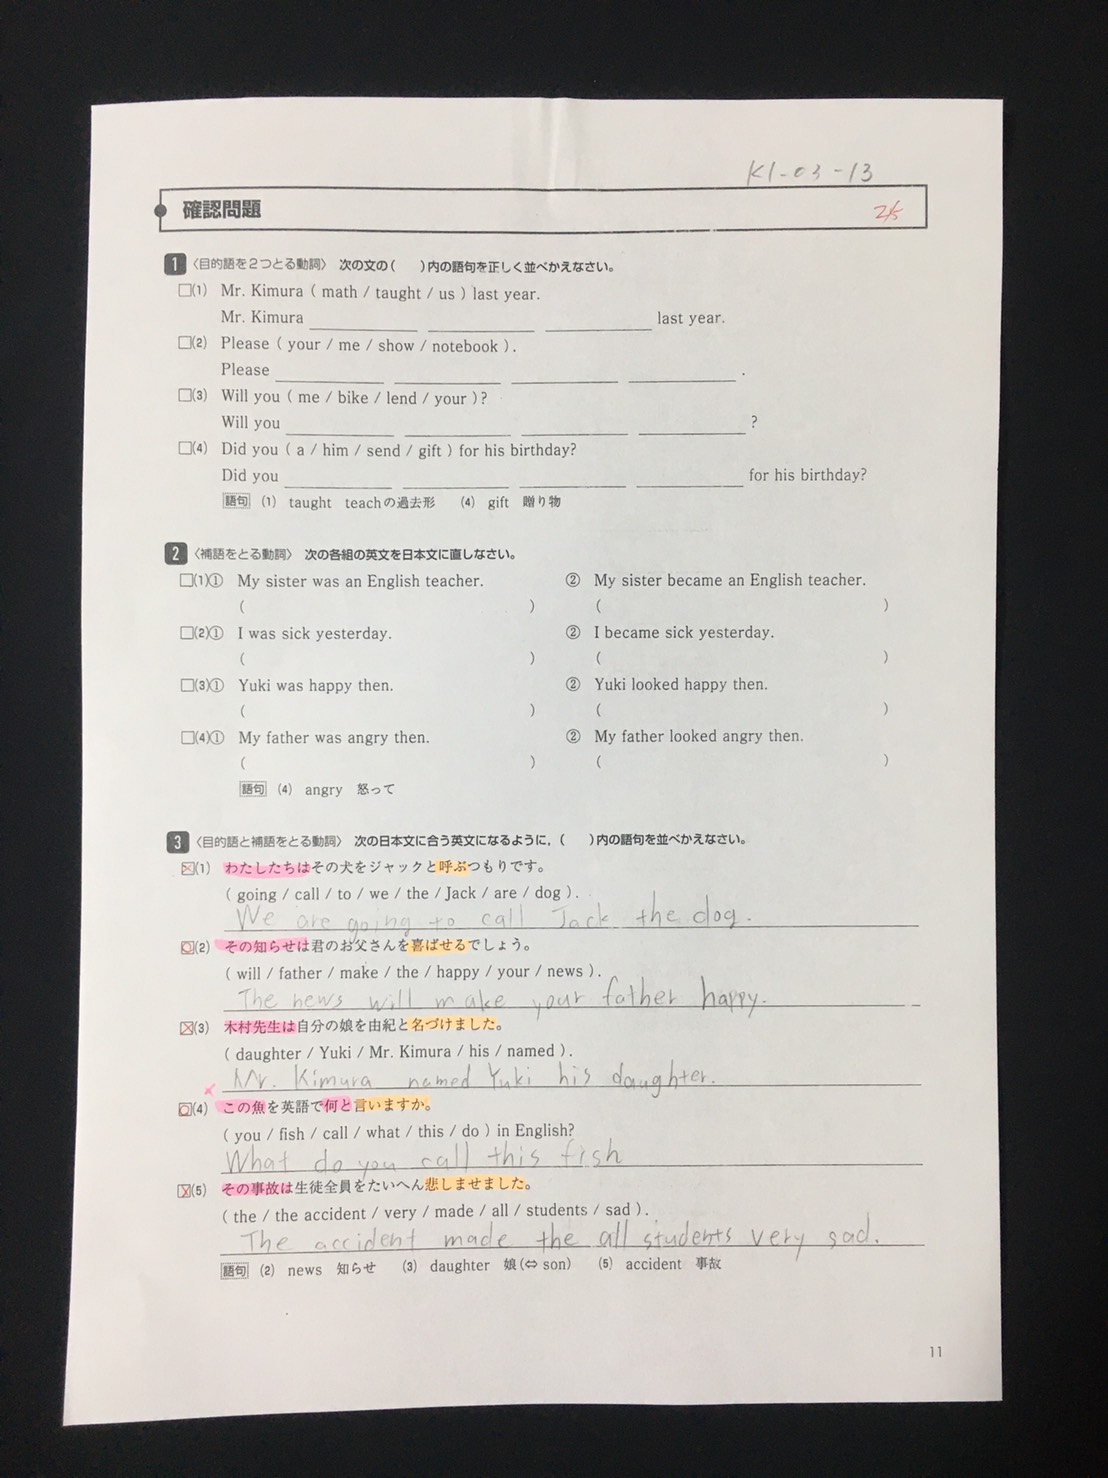 K1-03-13
確認問題
2/5
1 〈目的語を2つとる動詞〉 次の文の( )内の語句を正しく並べかえなさい。
□(1) Mr. Kimura ( math / taught / us ) last year.
Mr. Kimura ____ ____ ____ last year.
□(2) Please ( your / me / show / notebook ).
Please ____ ____ ____ ____ .
□(3) Will you ( me / bike / lend / your )?
Will you ____ ____ ____ ____ ?
□(4) Did you ( a / him / send / gift ) for his birthday?
Did you ____ ____ ____ ____ for his birthday?
語句 (1) taught teachの過去形 (4) gift 贈り物
2 〈補語をとる動詞〉 次の各組の英文を日本文に直しなさい。
□(1)① My sister was an English teacher. ② My sister became an English teacher.
( ) ( )
□(2)① I was sick yesterday. ② I became sick yesterday.
( ) ( )
□(3)① Yuki was happy then. ② Yuki looked happy then.
( ) ( )
□(4)① My father was angry then. ② My father looked angry then.
( ) ( )
語句 (4) angry 怒って
3 〈目的語と補語をとる動詞〉 次の日本文に合う英文になるように，( )内の語句を並べかえなさい。
□(1) わたしたちはその犬をジャックと呼ぶつもりです。
( going / call / to / we / the / Jack / are / dog ).
We are going to call Jack the dog.
□(2) その知らせは君のお父さんを喜ばせるでしょう。
( will / father / make / the / happy / your / news ).
The news will make your father happy.
□(3) 木村先生は自分の娘を由紀と名づけました。
( daughter / Yuki / Mr. Kimura / his / named ).
Mr. Kimura named Yuki his daughter.
□(4) この魚を英語で何と言いますか。
( you / fish / call / what / this / do ) in English?
What do you call this fish
□(5) その事故は生徒全員をたいへん悲しませました。
( the / the accident / very / made / all / students / sad ).
The accident made the all students very sad.
語句 (2) news 知らせ (3) daughter 娘(⇔ son) (5) accident 事故
11